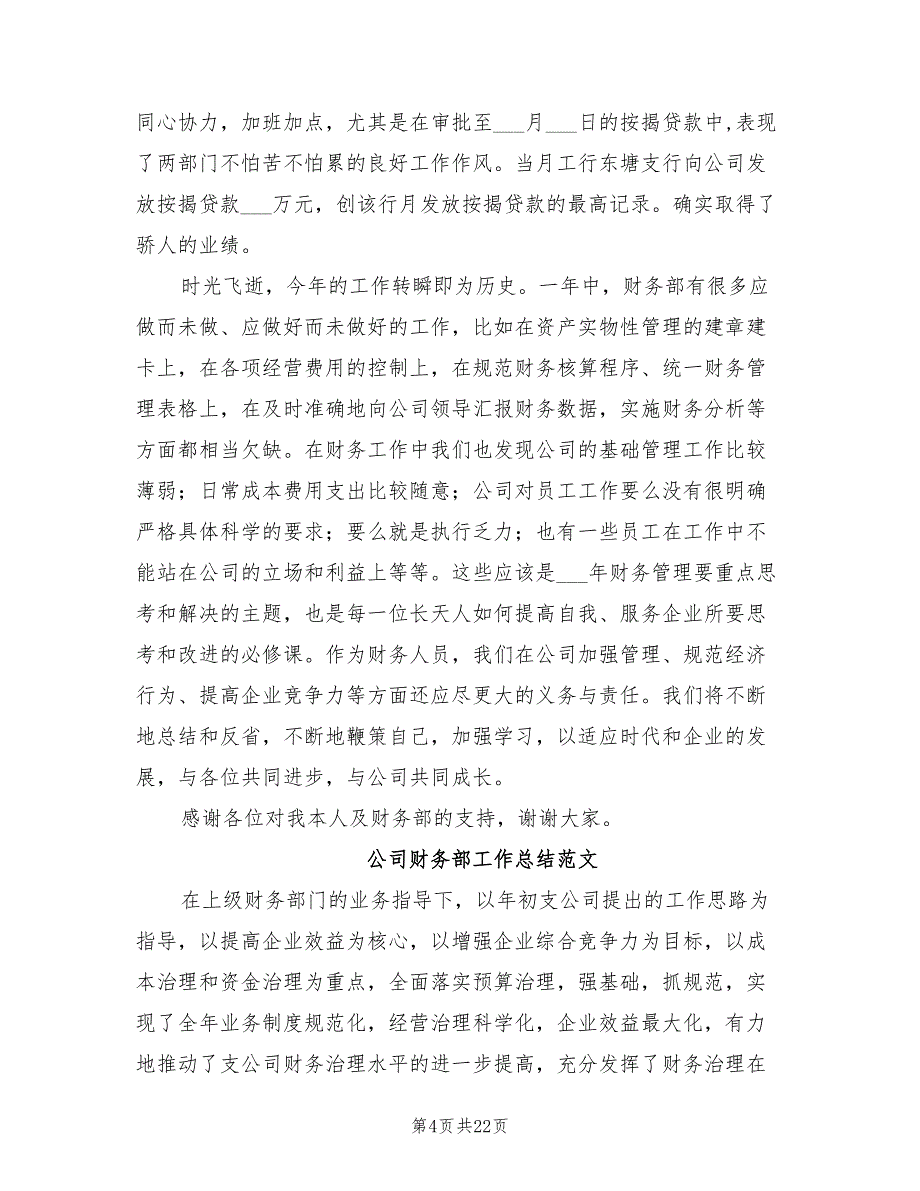 同心协力，加班加点，尤其是在审批至___月___日的按揭贷款中,表现
了两部门不怕苦不怕累的良好工作作风。当月工行东塘支行向公司发
放按揭贷款___万元，创该行月发放按揭贷款的最高记录。确实取得了
骄人的业绩。
时光飞逝，今年的工作转瞬即为历史。一年中，财务部有很多应
做而未做、应做好而未做好的工作，比如在资产实物性管理的建章建
卡上，在各项经营费用的控制上，在规范财务核算程序、统一财务管
理表格上，在及时准确地向公司领导汇报财务数据，实施财务分析等
方面都相当欠缺。在财务工作中我们也发现公司的基础管理工作比较
薄弱；日常成本费用支出比较随意；公司对员工工作要么没有很明确
严格具体科学的要求；要么就是执行乏力；也有一些员工在工作中不
能站在公司的立场和利益上等等。这些应该是___年财务管理要重点思
考和解决的主题，也是每一位长天人如何提高自我、服务企业所要思
考和改进的必修课。作为财务人员，我们在公司加强管理、规范经济
行为、提高企业竞争力等方面还应尽更大的义务与责任。我们将不断
地总结和反省，不断地鞭策自己，加强学习，以适应时代和企业的发
展，与各位共同进步，与公司共同成长。
感谢各位对我本人及财务部的支持，谢谢大家。
公司财务部工作总结范文
在上级财务部门的业务指导下，以年初支公司提出的工作思路为
指导，以提高企业效益为核心，以增强企业综合竞争力为目标，以成
本治理和资金治理为重点，全面落实预算治理，强基础，抓规范，实
现了全年业务制度规范化，经营治理科学化，企业效益最大化，有力
地推动了支公司财务治理水平的进一步提高，充分发挥了财务治理在
第4页共22页